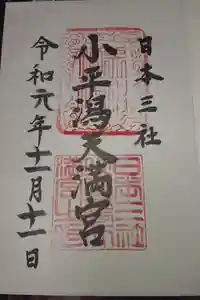 日本三社
小平潟天満宮
令和元年十一月十一日